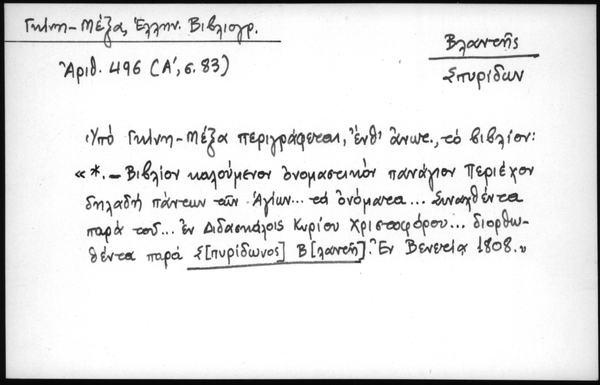 Γκίνη-Μέξα, Ἑλλην. Βιβλιογρ.
Ἀριθ. 496 (Α΄, σ. 83)
Βλαντῆς
Σπυρίδων
Ὑπό Γκίνη-Μέξα περιγράφεται, ἔνθ' ἄνωτ., τό βιβλίον:
«*. – Βιβλίον καλούμενον ὀνομαστικόν πανάγιον Περιέχον
δηλαδή πάντων τῶν Ἁγίων... τά ὀνόματα... Συναχθέντα
παρά τοῦ... ἐν Διδασκάλοις Κυρίου Χριστοφόρου... διορθω-
θέντα παρά Σ[πυρίδωνος] Β[λαντῆ]. Ἐν Βενετίᾳ 1808.»